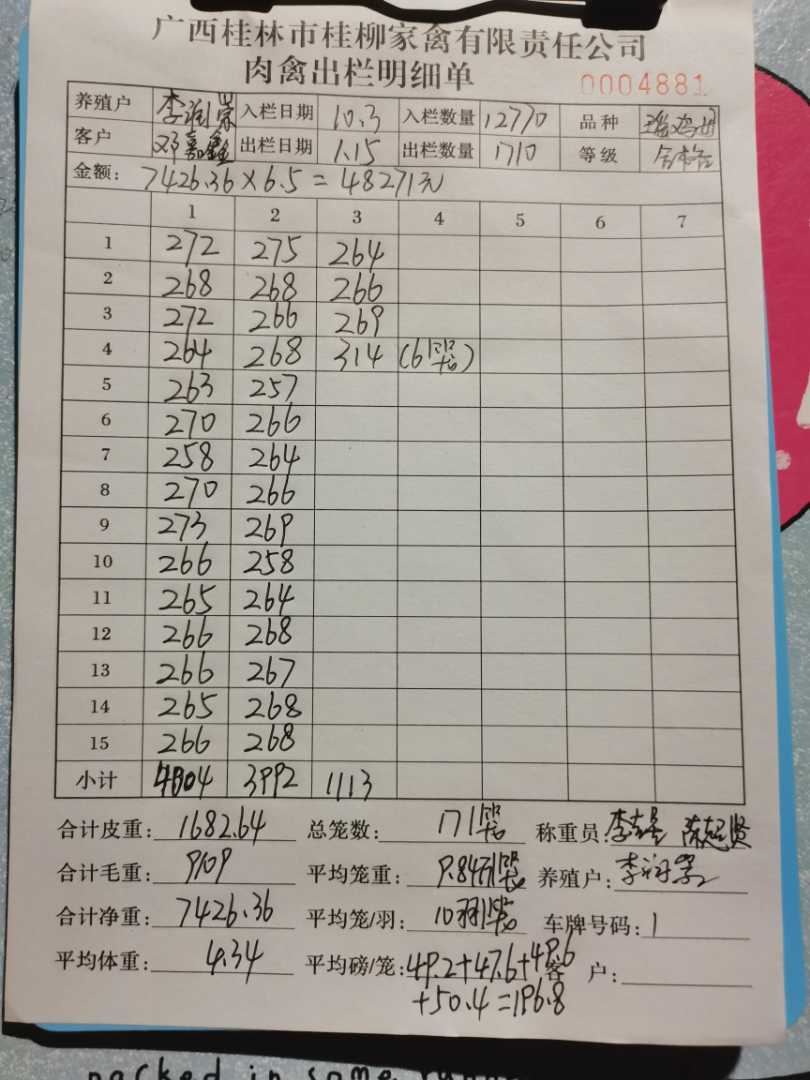 广西桂林市桂柳家禽有限责任公司
肉禽出栏明细单
0004881
养殖户 李润 入栏日期 10.3 入栏数量 12770 品种
客户 邓嘉鑫 出栏日期 1.15 出栏数量 1710 等级 合格
金额: 7426.36×6.5=48271元
1 2 3 4 5 6 7
1 272 275 264
2 268 268 266
3 272 266 269
4 264 268 314 (6笼)
5 263 257
6 270 266
7 258 264
8 270 266
9 273 269
10 266 258
11 265 264
12 266 268
13 266 267
14 265 268
15 266 268
小计 4004 3992 1113
合计皮重: 1682.64 总笼数: 171笼 称重员: 李 陈超贤
合计毛重: 9109 平均笼重: 9.84 养殖户: 李润
合计净重: 7426.36 平均笼/羽: 10羽 车牌号码: 1
平均体重: 4.34 平均磅/笼: 49.2+47.6+49.6 客 户:
+50.4=196.8
packed in some